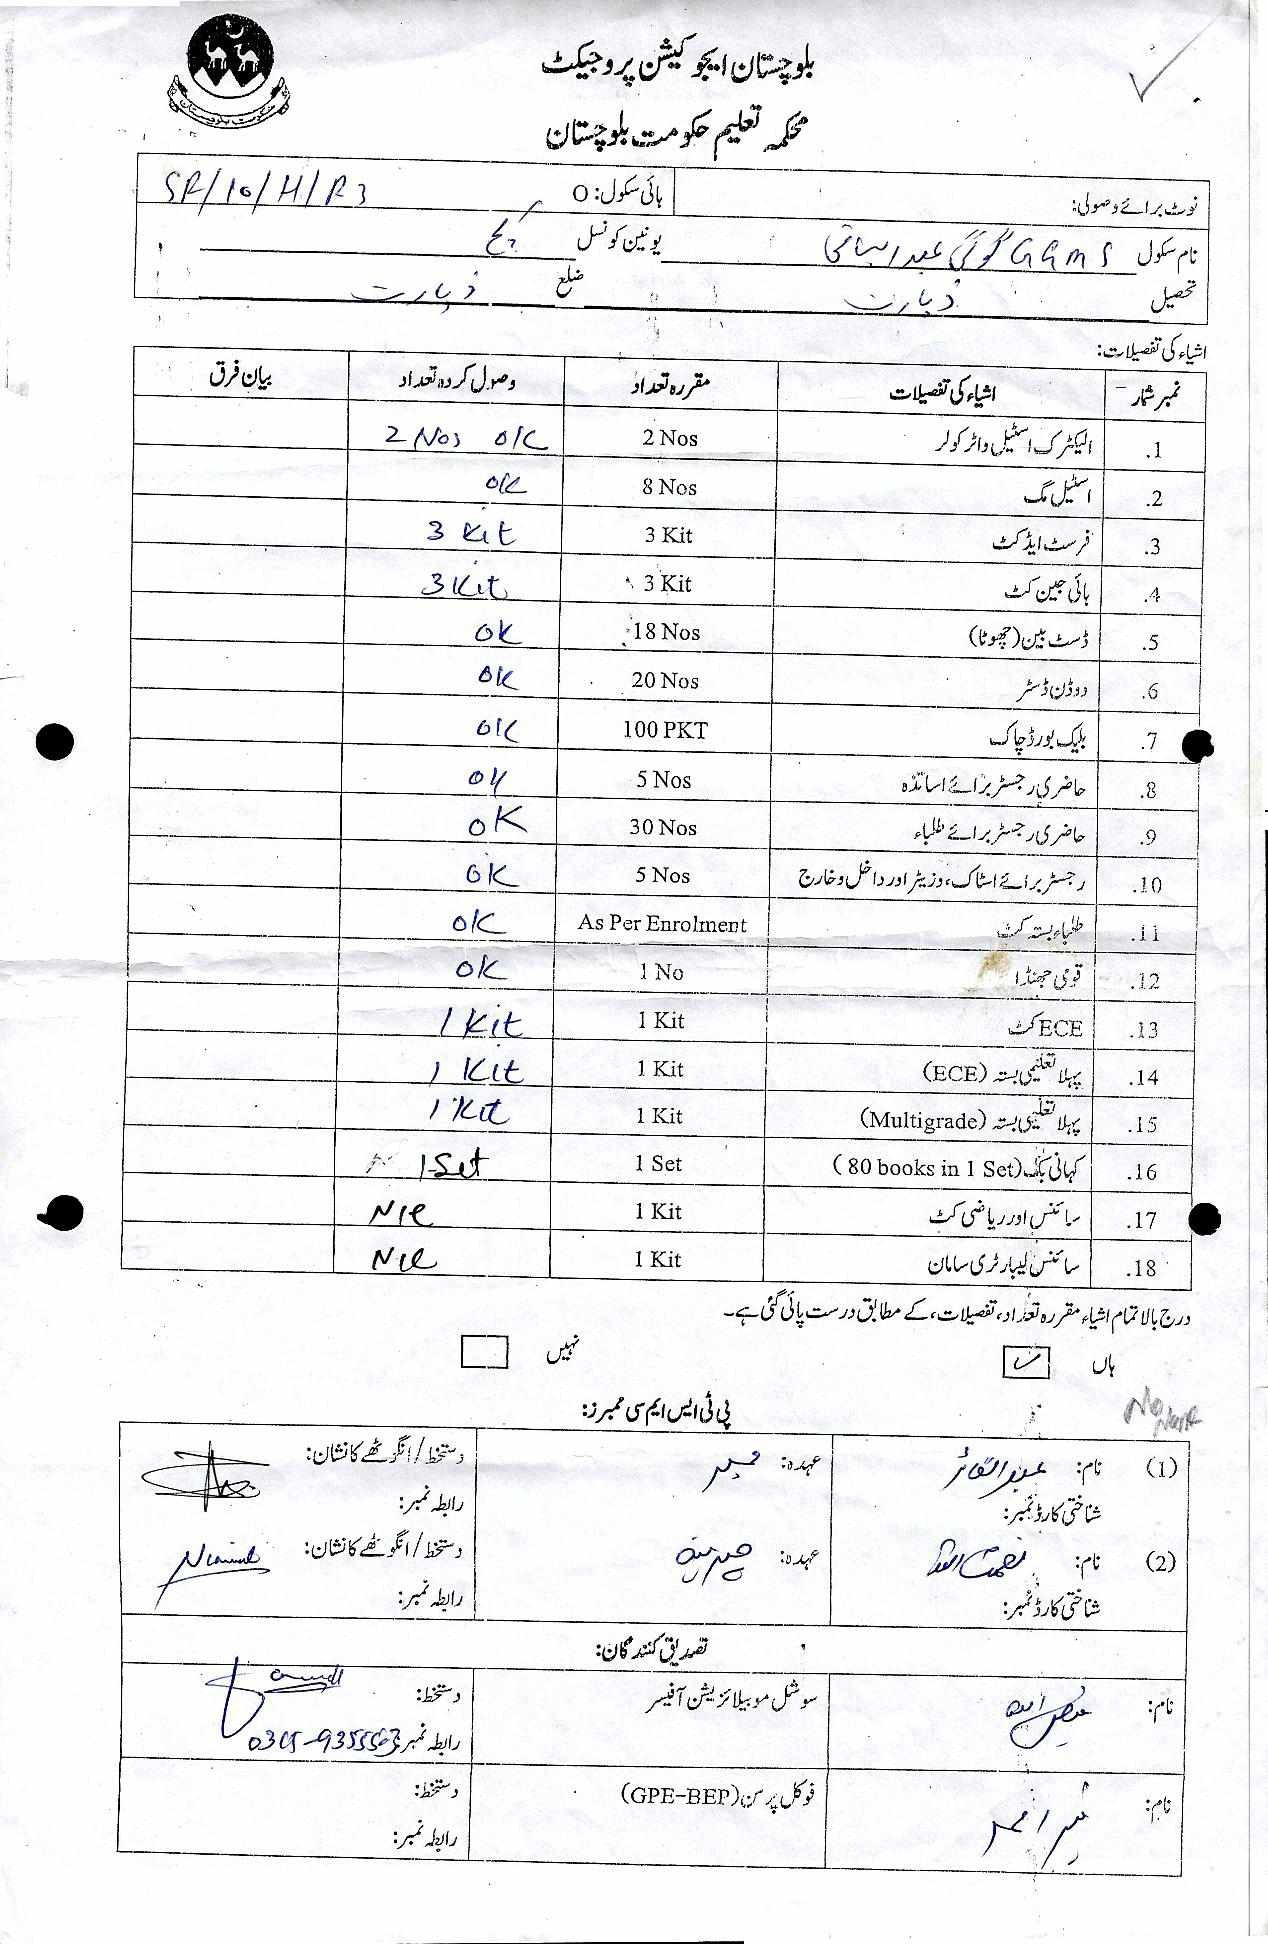 بلوچستان ایجوکیشن پروجیکٹ
محکمہ تعلیم حکومت بلوچستان
حکومت بلوچستان
نوٹ برائے وصولی: ہائی سکول: O SR/10/H/R3
نام سکول GGMS عبد الباقی یونین کونسل
تحصیل زیارت ضلع زیارت
اشیاء کی تفصیلات:
نمبر شمار اشیاء کی تفصیلات مقررہ تعداد وصول کردہ تعداد بیان فرق
1. الیکٹرک اسٹیل واٹر کولر 2 Nos 2 Nos OK
2. اسٹیل مگ 8 Nos OK
3. فرسٹ ایڈ کٹ 3 Kit 3 Kit
4. ہائی جین کٹ 3 Kit 3 Kit
5. ڈسٹ بین (چھوٹا) 18 Nos OK
6. ووڈن ڈسٹر 20 Nos OK
7. بلیک بورڈ چاک 100 PKT OK
8. حاضری رجسٹر برائے اساتذہ 5 Nos OK
9. حاضری رجسٹر برائے طلباء 30 Nos OK
10. رجسٹر برائے اسٹاک، وزیٹر اور داخل و خارج 5 Nos OK
11. طلباء بستہ کٹ As Per Enrolment OK
12. قومی جھنڈا 1 No OK
13. ECE کٹ 1 Kit 1 Kit
14. پہلا تعلیمی بستہ (ECE) 1 Kit 1 Kit
15. پہلا تعلیمی بستہ (Multigrade) 1 Kit 1 Kit
16. کہانی بک (80 books in 1 Set) 1 Set 1 Set
17. سائنس اور ریاضی کٹ 1 Kit Nil
18. سائنس لیبارٹری سامان 1 Kit Nil
درج بالا تمام اشیاء مقررہ تعداد، تفصیلات، کے مطابق درست پائی گئی ہے۔
ہاں ✓ نہیں
پی ٹی ایس ایم سی ممبرز:
(1) نام: عہدہ: ممبر دستخط/انگوٹھے کا نشان:
شناختی کارڈ نمبر: رابطہ نمبر:
(2) نام: نعمت اللہ عہدہ: چیئرمین دستخط/انگوٹھے کا نشان:
شناختی کارڈ نمبر: رابطہ نمبر:
تصدیق کنندگان:
نام: سوشل موبیلائزیشن آفیسر دستخط:
رابطہ نمبر: 0315-9355563
نام: فوکل پرسن (GPE-BEP) دستخط:
رابطہ نمبر: